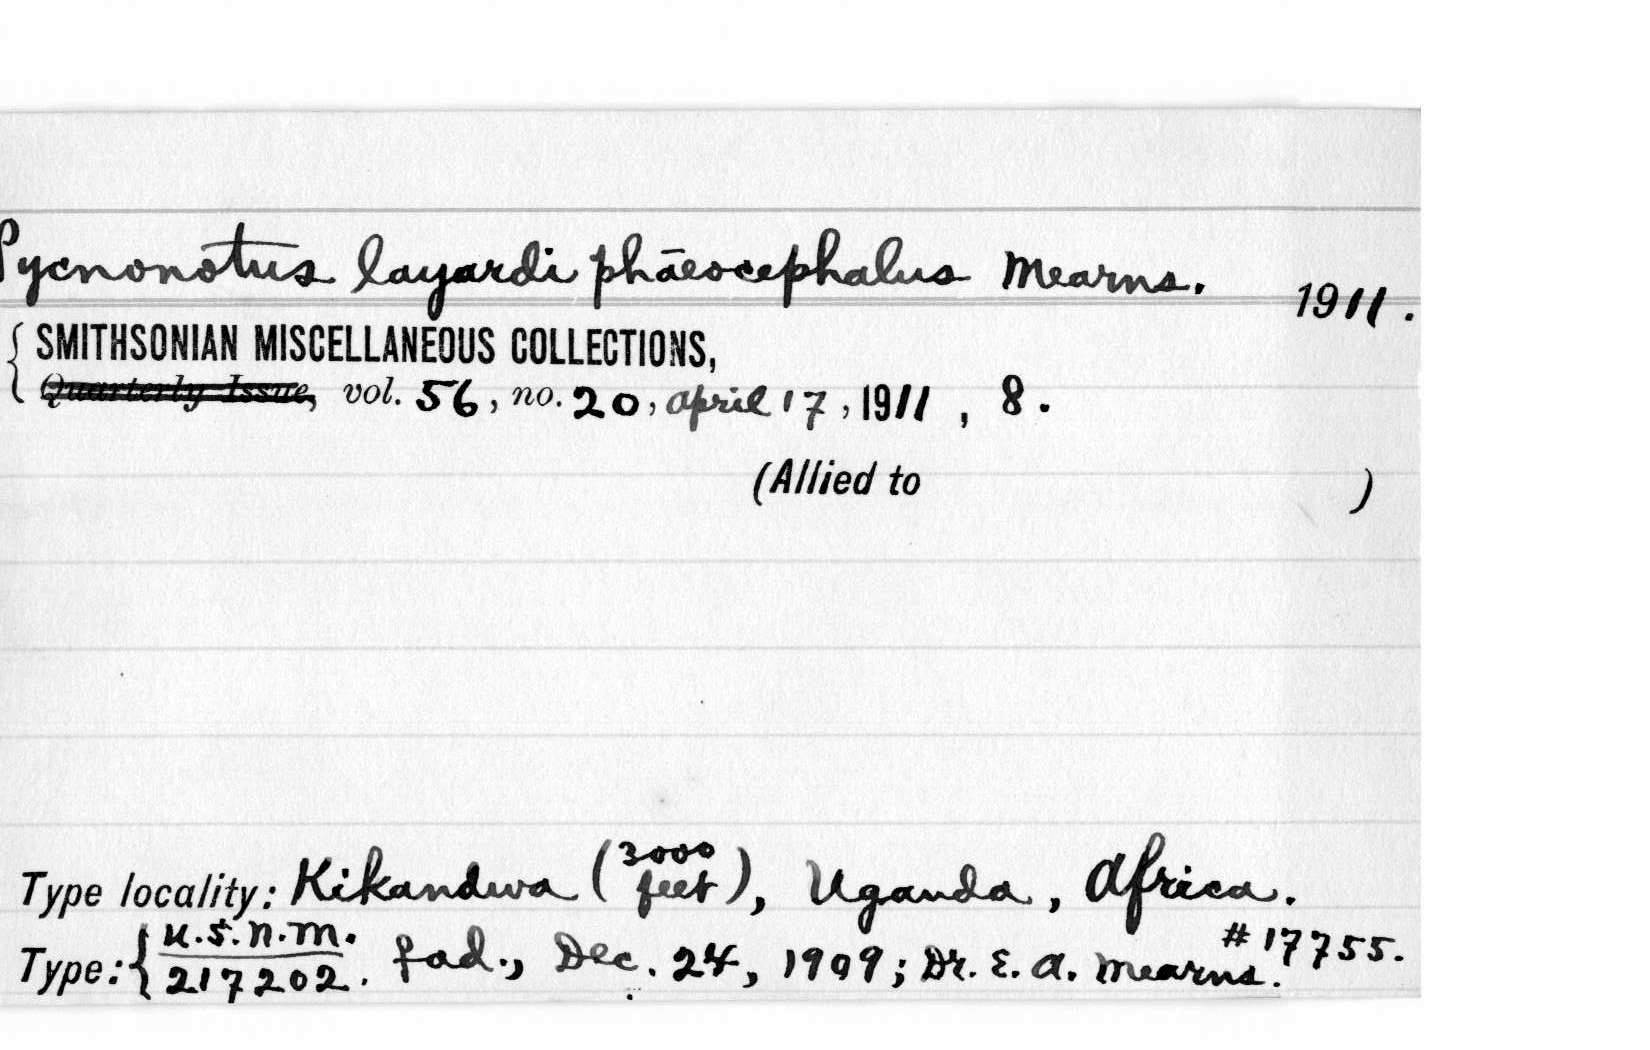 Pycnonotus layardi phāeocephalus Mearns.
1911.
SMITHSONIAN MISCELLANEOUS COLLECTIONS,
Quarterly Issue, vol. 56, no. 20, april 17, 1911, 8.
(Allied to )
Type locality: Kikandwa (3000 feet), Uganda, Africa.
Type: { U.S.N.M. 217202. f ad., Dec. 24, 1909; Dr. E. A. Mearns. #17755.